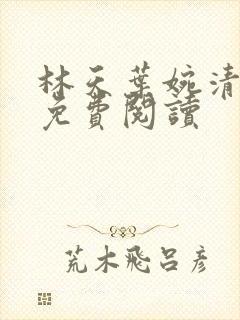 林天葉婉清
免費閱讀
荒木飛呂彥